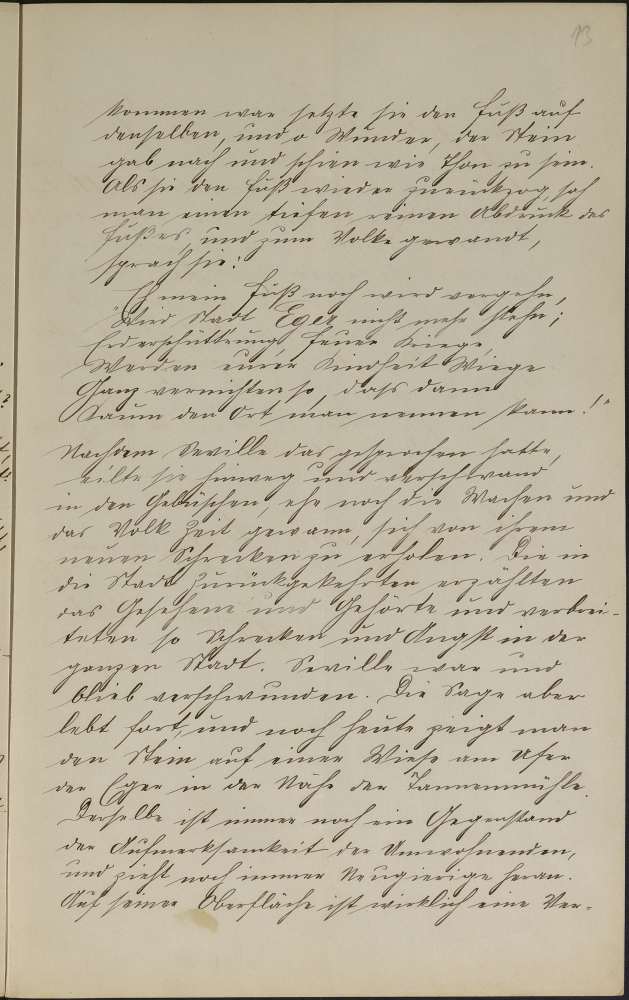 13
kommen war setzte sie den Fuß auf
denselben, und o Wunder, der Stein
gab nach und schien wie Thon zu sein.
Als sie den Fuß wieder zurückzog, sah
man einen tiefen reinen Abdruck des
Fußes, und zum Volke gewandt,
sprach sie:
"Eh mein Fuß noch wird vergehn,
Wird Stadt Eger nicht mehr stehn;
Erderschütt'rung, Feuer, Kriege,
Werden eurer Kindheit Wiege
Ganz vernichten so, dass dann
Kaum den Ort man nennen kann!"
Nachdem Sevilla das gesprochen hatte,
eilte sie hinweg und verschwand
in den Gebüschen, ehe noch die Wachen und
das Volk Zeit gewann, sich von ihrem
neuen Schrecken zu erholen. Die in
die Stadt Zurückgekehrten erzählten
das Gesehene und Gehörte und verbrei-
teten so Schrecken und Angst in der
ganzen Stadt. Sevilla war und
blieb verschwunden. Die Sage aber
lebt fort, und noch heute zeigt man
den Stein auf einer Wiese am Ufer
der Eger in der Nähe der Tannenmühle.
Derselbe ist immer noch ein Gegenstand
der Aufmerksamkeit der Umwohnenden,
und zieht noch immer Neugierige heran.
Auf seiner Oberfläche ist wirklich eine Ver-